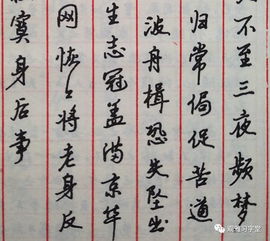 不至三夜频梦
归常侷促苦道
波舟楫恐失坠出
生志冠盖满京华
网恢々将老身反
寞身后事
习字堂